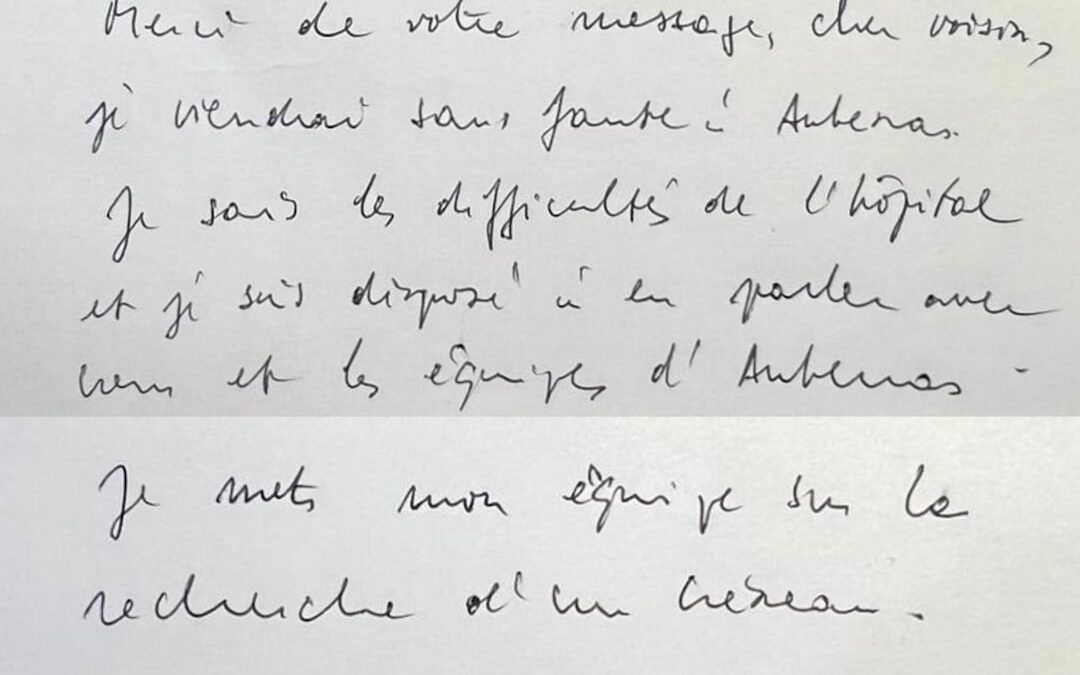 Merci de votre message, cher voisin,
je viendrai sans faute à Aubenas.
Je sais les difficultés de l'hôpital
et je suis disposé à en parler avec
vous et les équipes d'Aubenas.
Je mets mon équipe sur la
recherche d'un créneau.